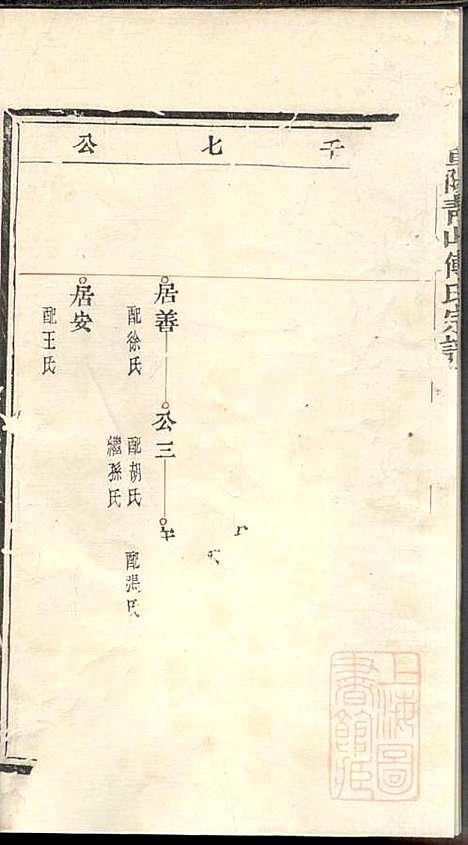 陽青山傅氏宗譜
千七公
居善
配徐氏
公三
配胡氏
繼孫氏
配張氏
居安
配王氏
上海圖
書館藏